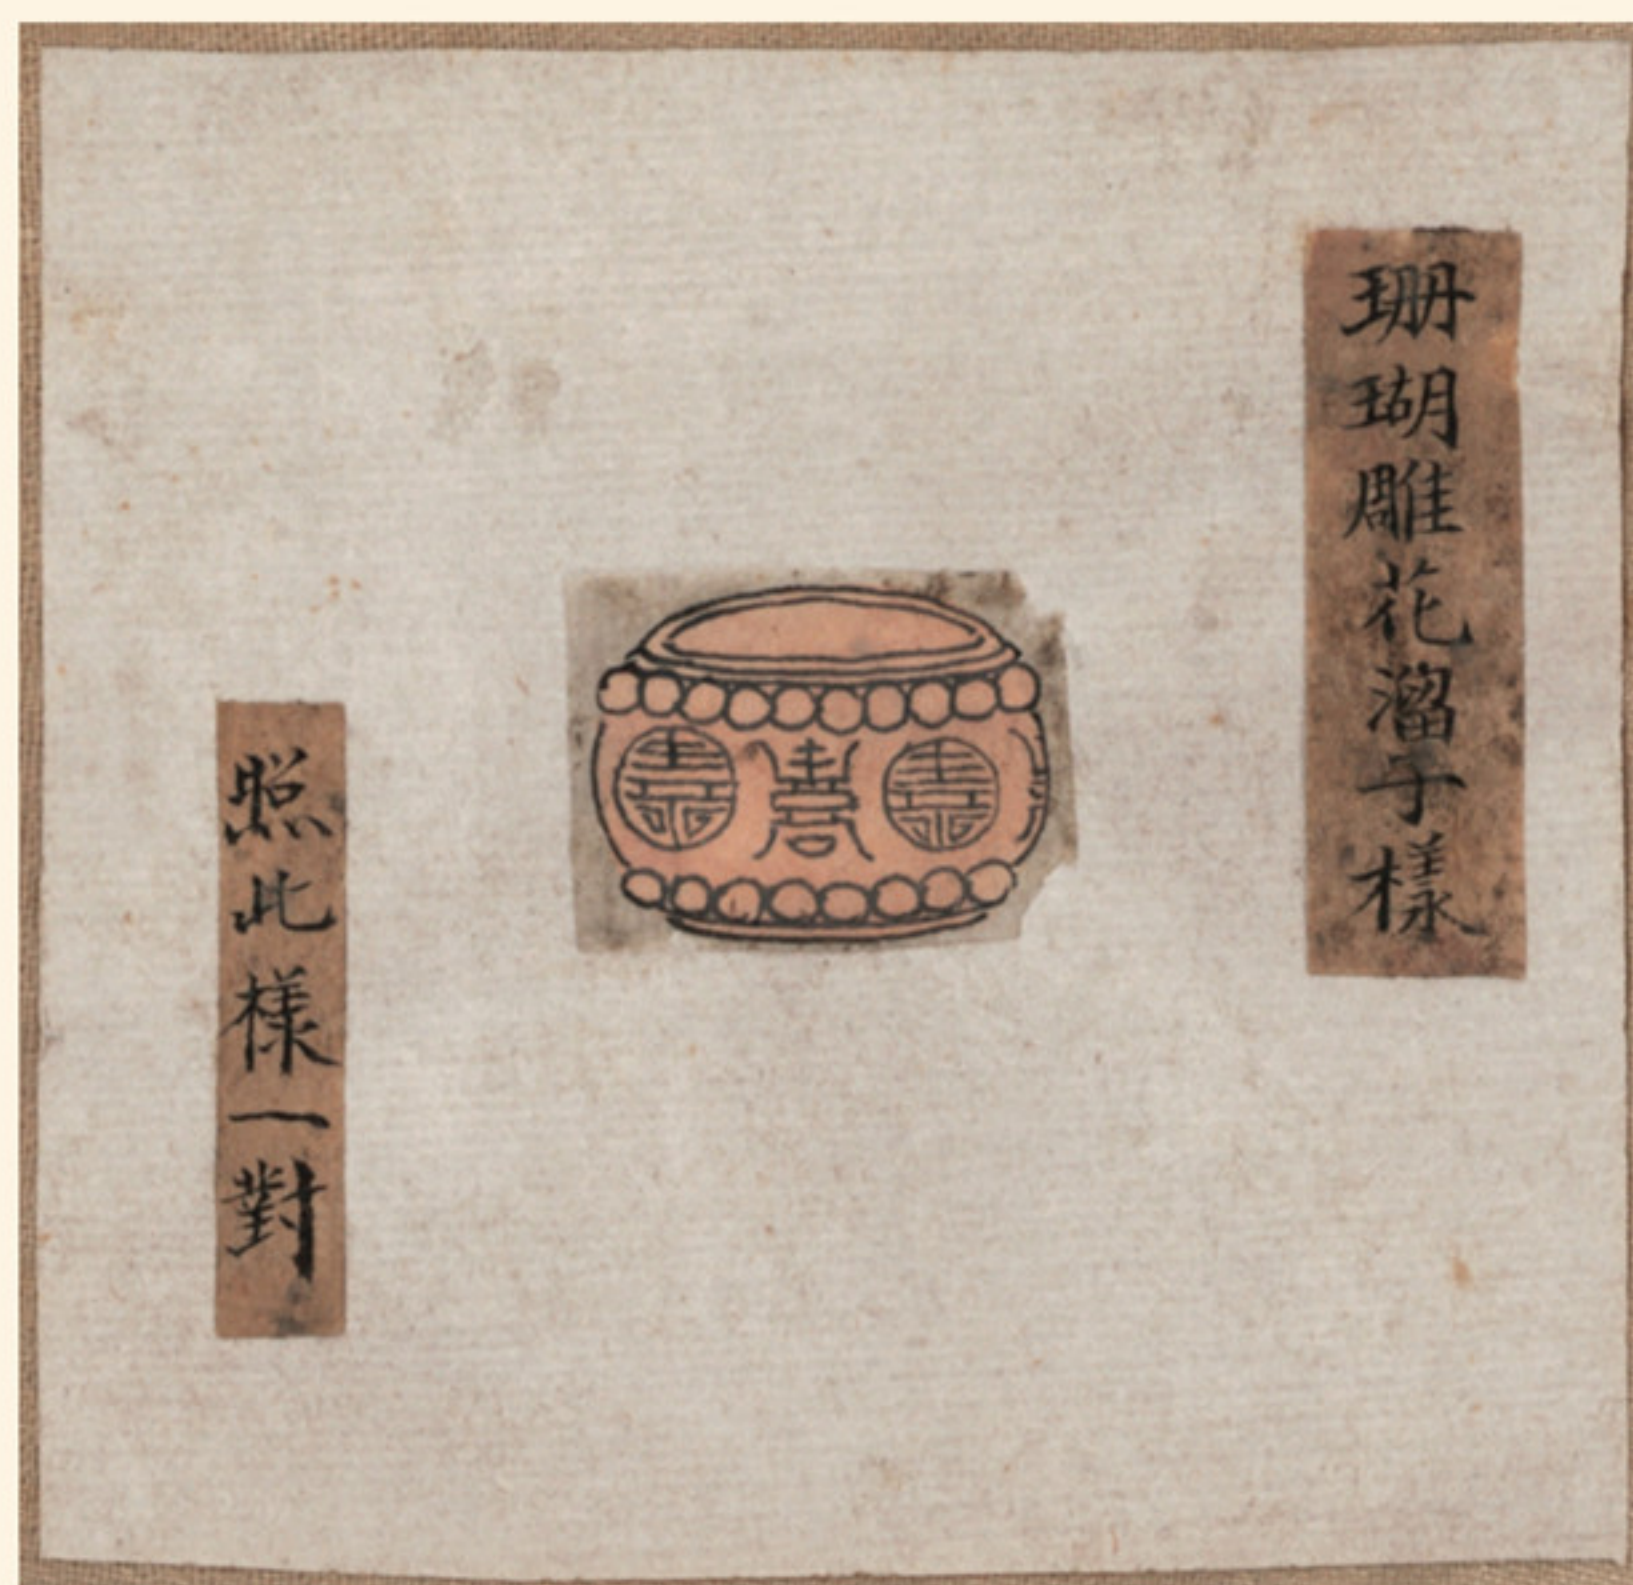 珊瑚雕花溜子樣
照此樣一對